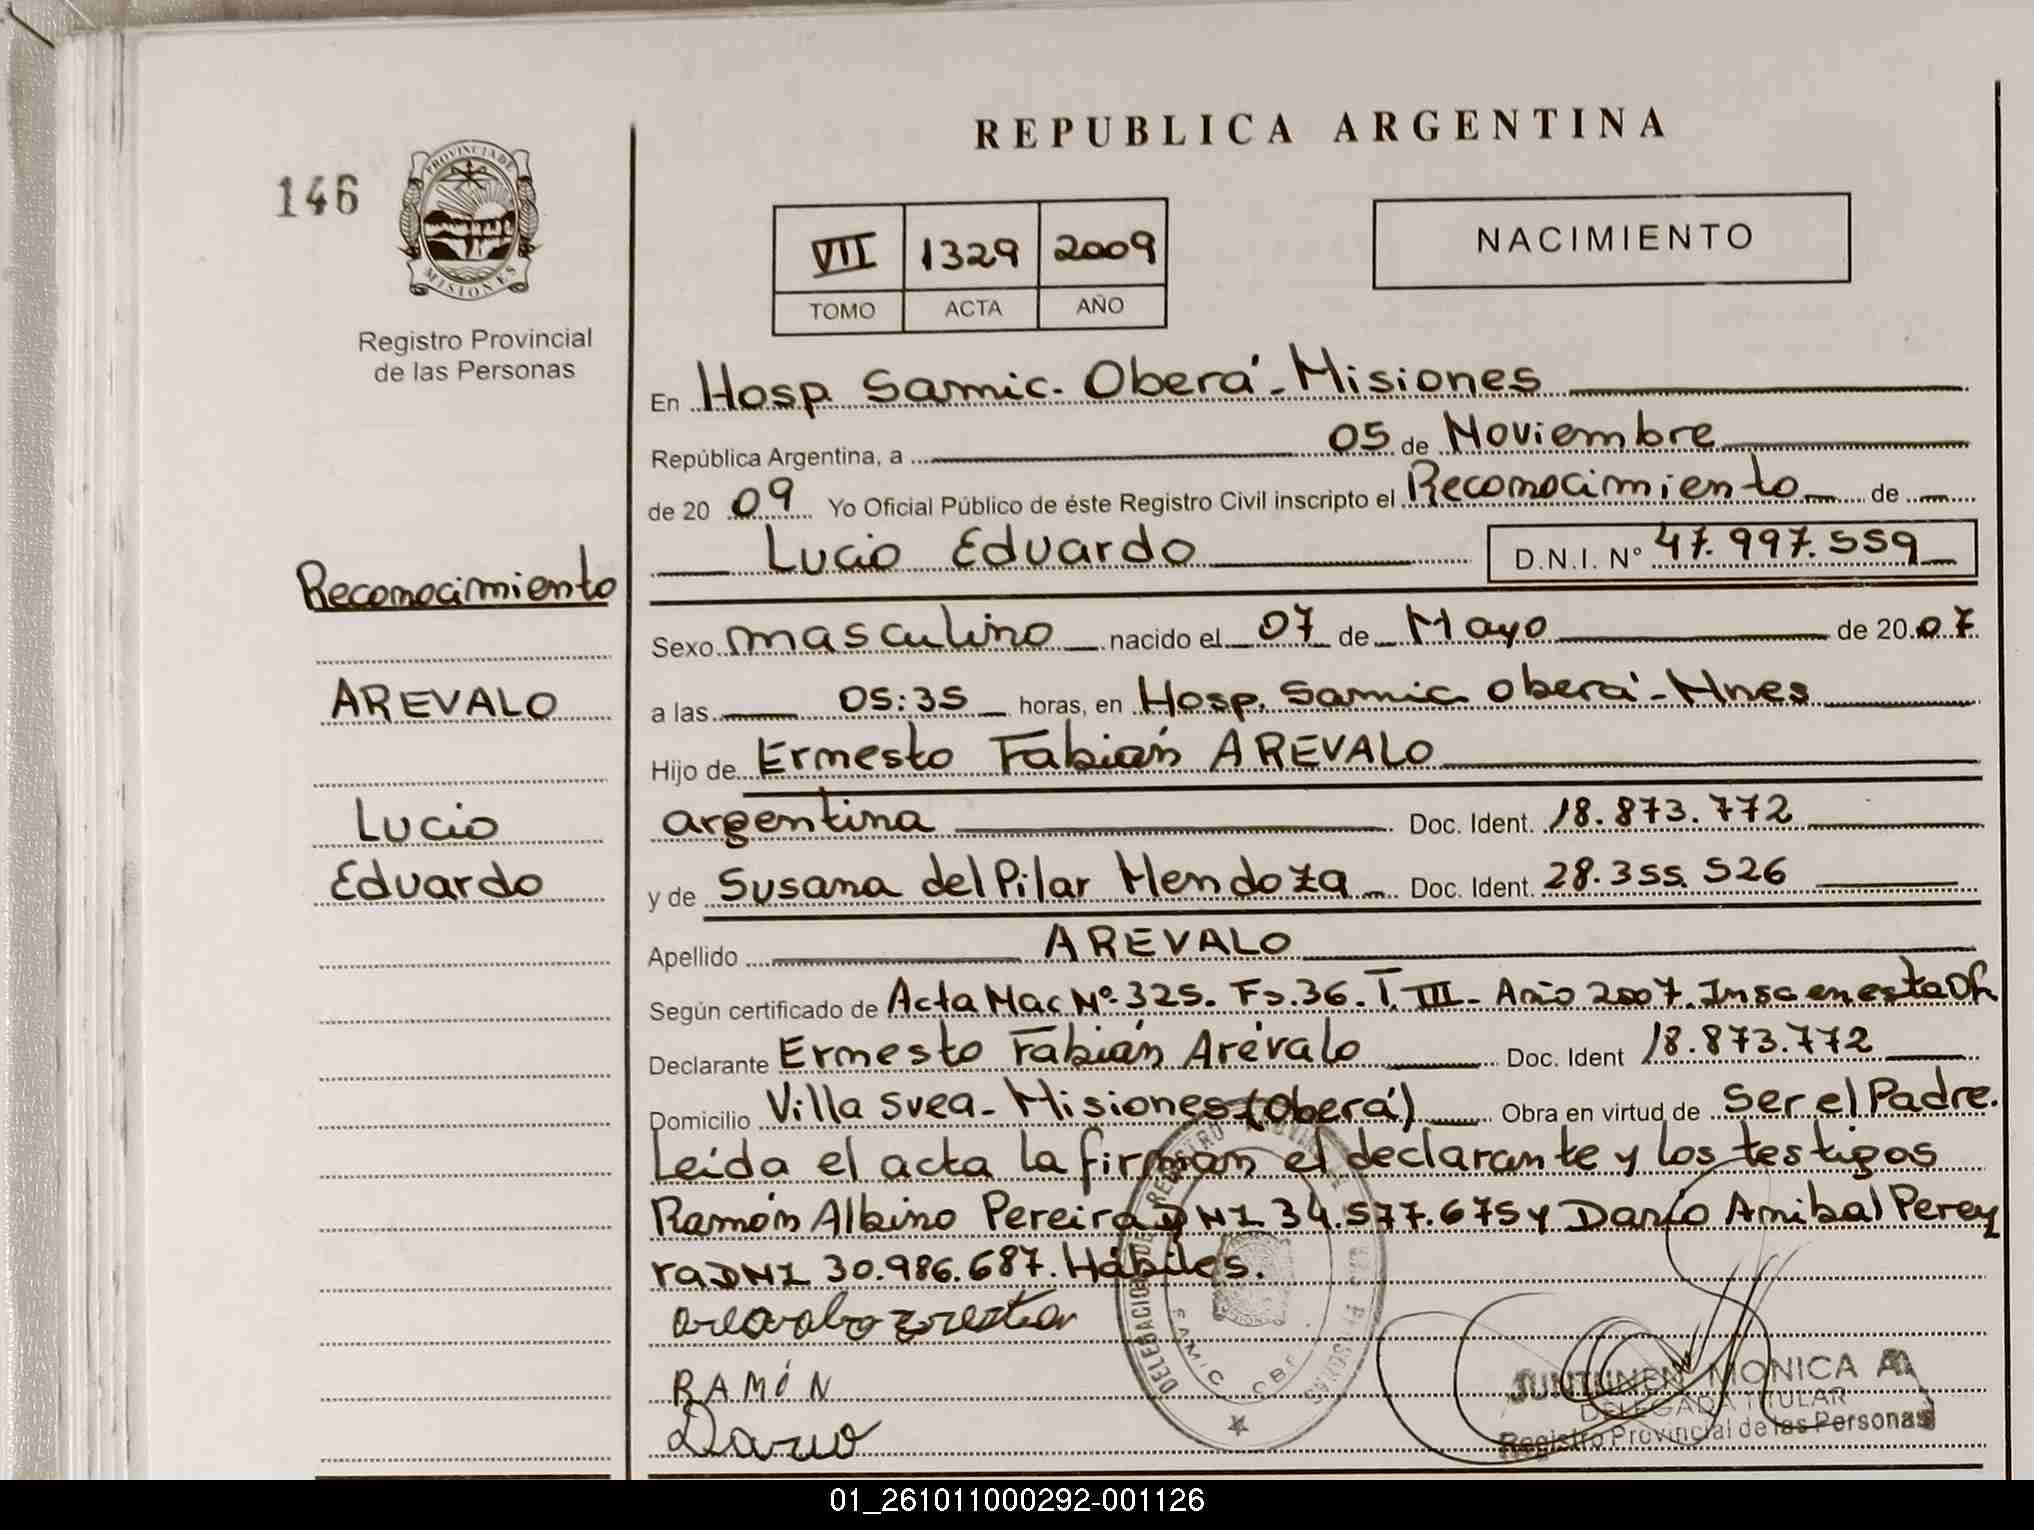 REPUBLICA ARGENTINA
146
PROVINCIA DE
MISIONES
Registro Provincial
de las Personas
VII 1329 2009
TOMO ACTA AÑO
NACIMIENTO
En Hosp. Samic. Oberá - Misiones
República Argentina, a 05 de Noviembre
de 2009 Yo Oficial Público de éste Registro Civil inscripto el Reconocimiento de
Lucio Eduardo D.N.I. Nº 47.997.559
Reconocimiento
AREVALO
Lucio
Eduardo
Sexo masculino nacido el 07 de Mayo de 2007
a las 05:35 horas, en Hosp. Samic Oberá - Mnes
Hijo de Ernesto Fabián AREVALO
argentina Doc. Ident. 18.873.772
y de Susana del Pilar Mendoza Doc. Ident. 28.355.526
Apellido AREVALO
Según certificado de Acta Nac Nº 325. Fs. 36. T. III - Año 2007. Insc en esta Of.
Declarante Ernesto Fabián Arévalo Doc. Ident 18.873.772
Domicilio Villa Svea - Misiones (Oberá) Obra en virtud de Ser el Padre.
Leída el acta la firman el declarante y los testigos
Ramón Albino Pereira DNI 34.577.675 y Darío Anibal Perey
ra DNI 30.986.687. Hábiles.
RAMÓN
Dario
JUNTUNEN MONICA A.
DELEGADA TITULAR
Registro Provincial de las Personas
01_261011000292-001126